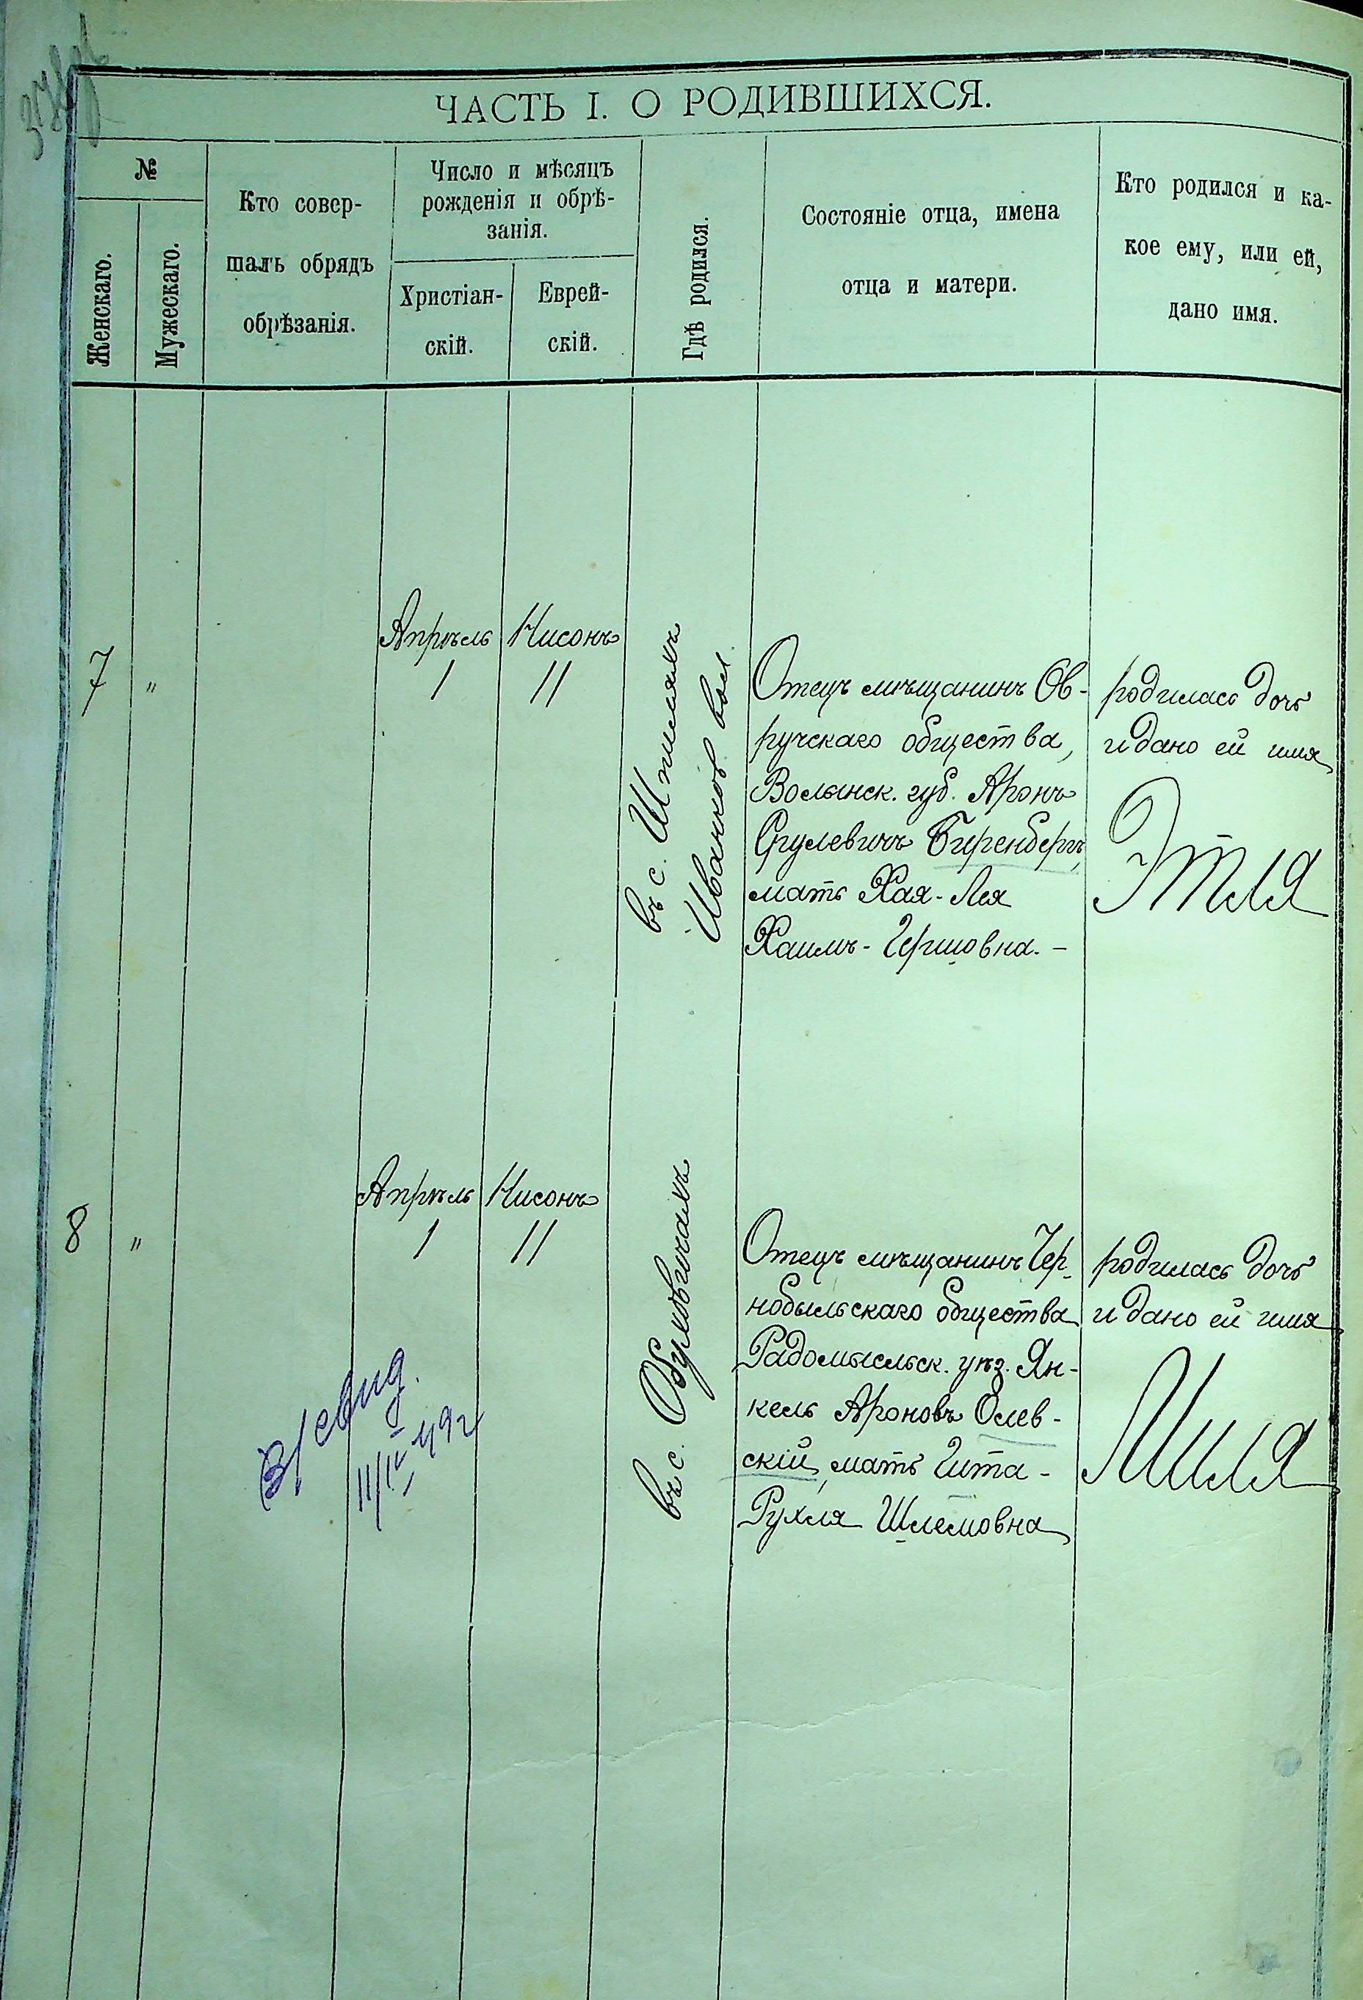 ЧАСТЬ I. О РОДИВШИХСЯ.
№
Женскаго.
Мужескаго.
Кто совер-
шалъ обрядъ
обрѣзанія.
Число и мѣсяцъ
рожденія и обрѣ-
занія.
Христіан-
скій.
Еврей-
скій.
Гдѣ родился.
Состояніе отца, имена
отца и матери.
Кто родился и ка-
кое ему, или ей,
дано имя.
7
"
Апрѣль
1
Нисонъ
11
въ с. Шпиляхъ
Иванков. вол.
Отецъ мѣщанинъ Ов-
ручскаго общества,
Волынск. губ. Аронъ
Срулевичъ Биренбергъ,
мать Хая-Лея
Хаимъ-Гершовна. —
родилась дочь
и дано ей имя
Этля
8
"
Апрѣль
1
Нисонъ
11
въ с. Обуховичахъ
Отецъ мѣщанинъ Чер-
нобыльскаго общества
Радомысльск. уѣз. Ян-
кель Ароновъ Олев-
скій, мать Гита-
Рухля Шлемовна
родилась дочь
и дано ей имя
Миля
свид.
11/IV 49г